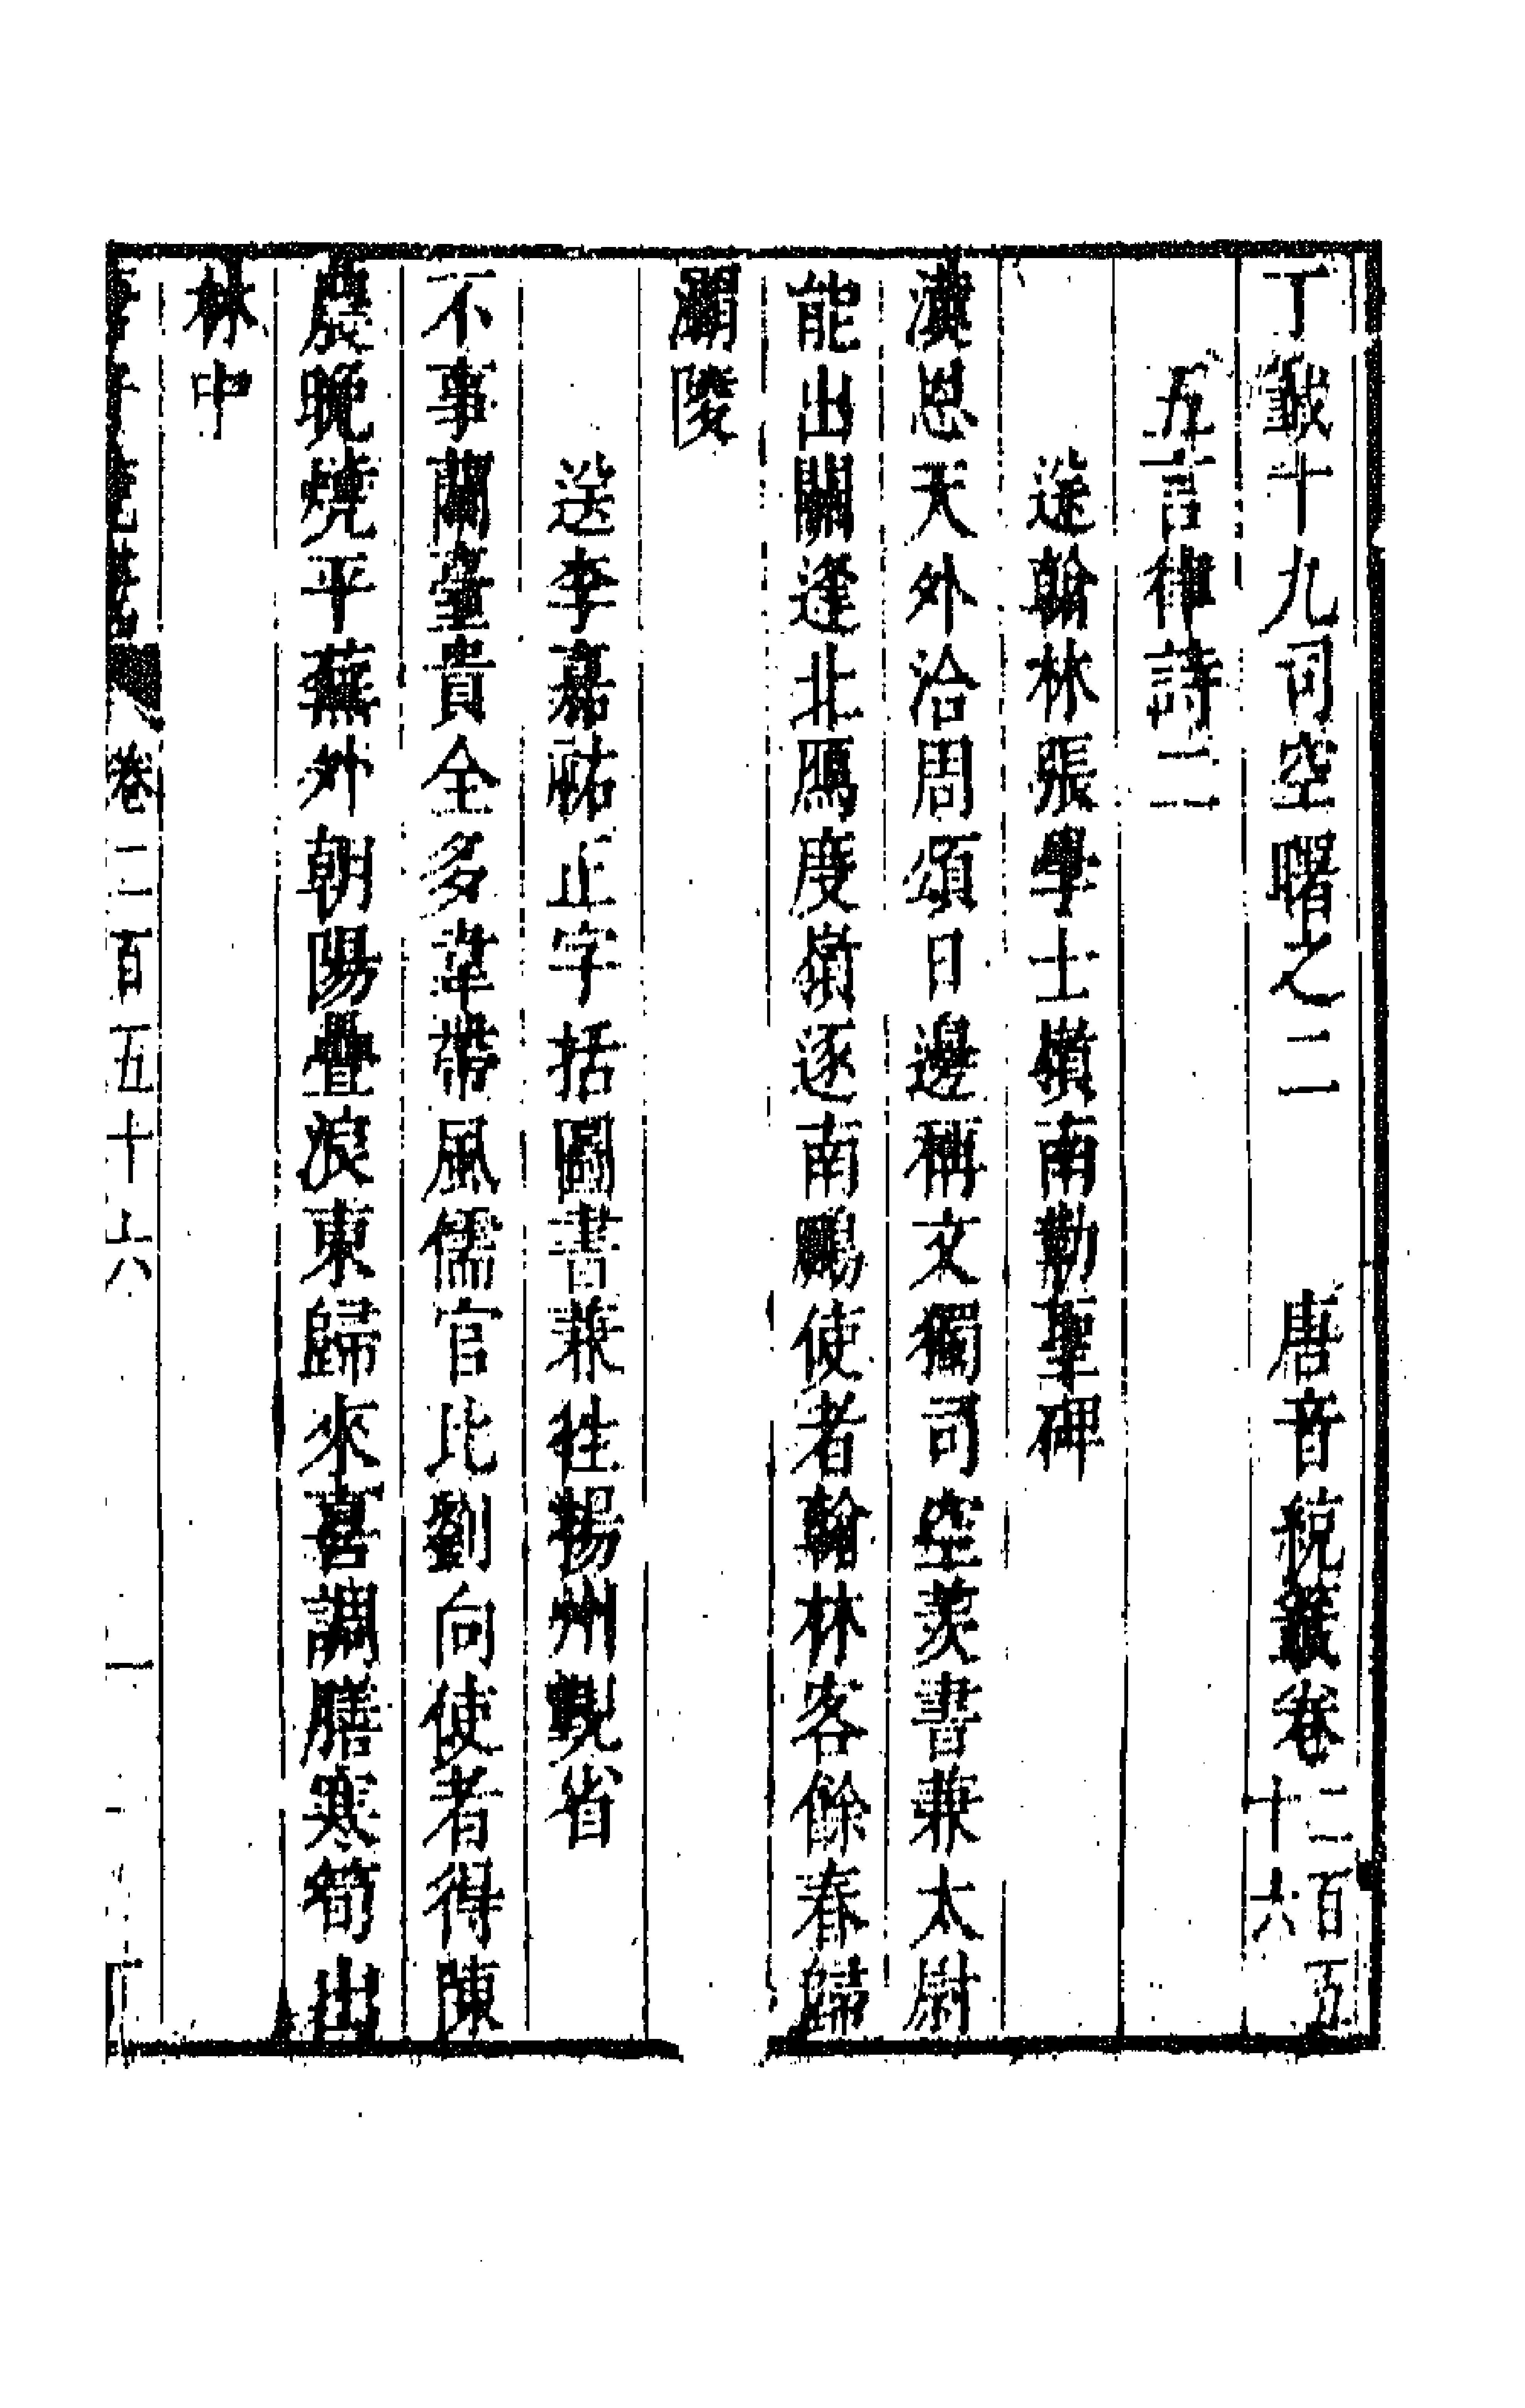 丁籤十九司空曙之二　唐音統籤卷二百五十六
五言律詩二
送翰林張學士嶺南勒聖碑
漢恩天外洽周頌日邊稱文獨司空羨書兼太尉
能出關逢北鴈度嶺逐南鵬使者翰林客餘春歸
灞陵
送李嘉祐正字括圖書兼往揚州覲省
不事蘭臺貴全多韋帶風儒官比劉向使者得陳
農晚燒平蕪外朝陽疊浪東歸來喜調膳寒筍出
林中
卷二百五十六　一